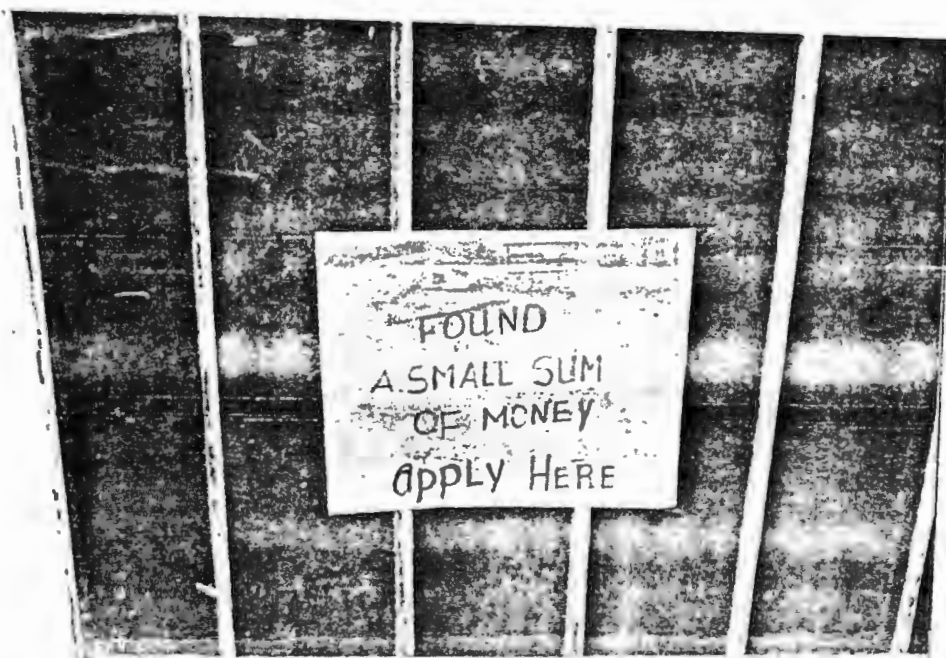 FOUND
A SMALL SUM
OF MONEY
APPLY HERE